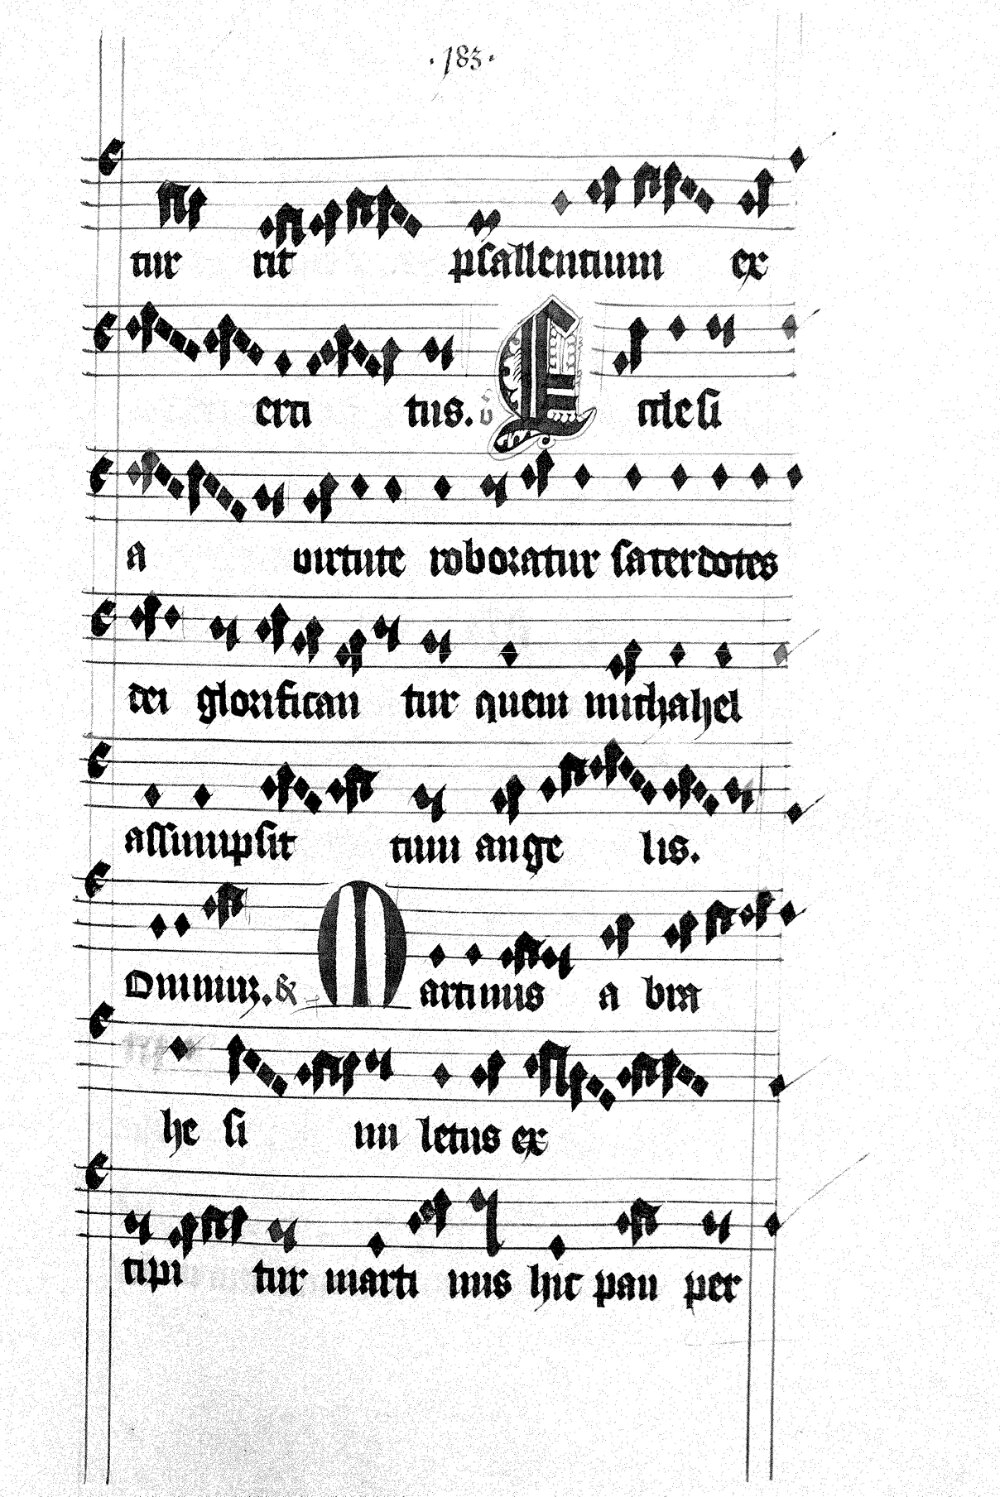 ·183·
tur cit psallentium ex
erci tus. v Eccle si
a virtute roboratur sacerdotes
dei glorifican tur quem michahel
assumpsit cum ange lis.
Dominuz. & Martinus a bra
he si nu letus ex
cipi tur marti nus hic pau per